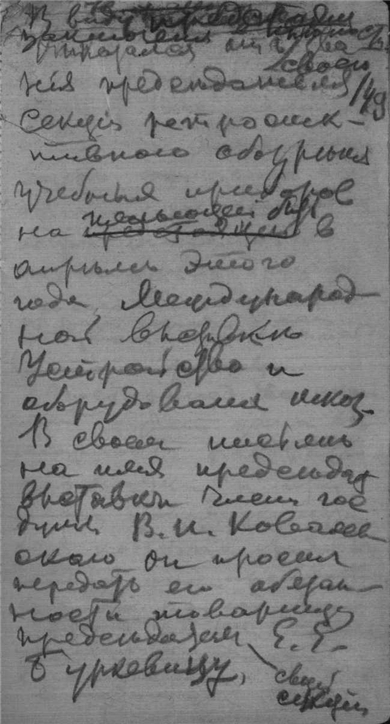 В виду
отказался от
своей
ния председателя
149
секции ретроспек-
тивного обозрения
учебных приборов
на имеющей быть в
апреле этого
года, Международ
ной выставки
Устройство и
оборудование школ.
В своем письме
на имя председат
выставки члена гос
думы В. И. Ковалев
ского он просил
передать его обязан
ности товарищу
председателя Е. Е.
Буркевицу,
своей
секции